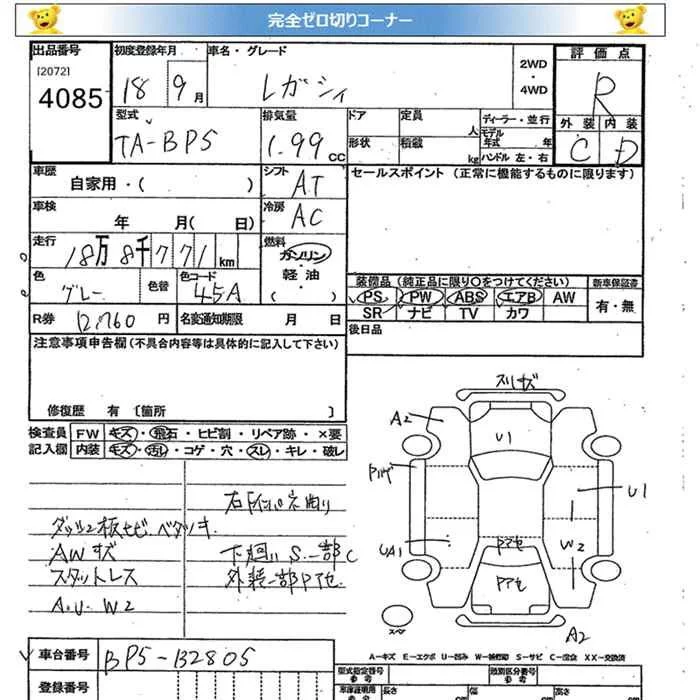 完全ゼロ切りコーナー
出品番号 初度登録年月 車名・グレード 評価点
[2072]
4085 18 9月 レガシィ 2WD・4WD R
型式 排気量 ドア 定員 人 ディーラー・並行 外装 内装
TA-BP5 1.99CC 形状 積載 kg モデル年式 年 C D
ハンドル 左・右
車歴 自家用・( ) シフト AT セールスポイント (正常に機能するものに限ります)
車検 年 月( 日) 冷房 AC
走行 18万8千771km 燃料 ガソリン・軽油・( )
色 グレー 色替 色コード 45A
装備品 (純正品に限り○をつけてください) 新車保証書
PS PW ABS エアB AW 有・無
SR ナビ TV カワ
R券 12,760円 名変通知期限 月 日 後日品
注意事項申告欄(不具合内容等は具体的に記入して下さい)
修復歴 有 〔箇所 〕
検査員記入欄 FW キズ・飛石・ヒビ割・リペア跡・×要
内装 キズ・汚れ・コゲ・穴・スレ・キレ・破レ
ダッシュ板セビ.ベタツキ
AWキズ 下廻りS.一部C
スタットレス 外装一部Pアセ
A.U.W2
スリキズ
A2
U1
U1
UA1
W2
Pアセ
Pアセ
スペア
A2
A-キズ E-エクボ U-凹み W-補修跡 S-サビ C-腐食 XX-交換済
車台番号 BP5-132805
登録番号
型式指定番号 参考 類別区分番号 参考
長さ 幅 高さ